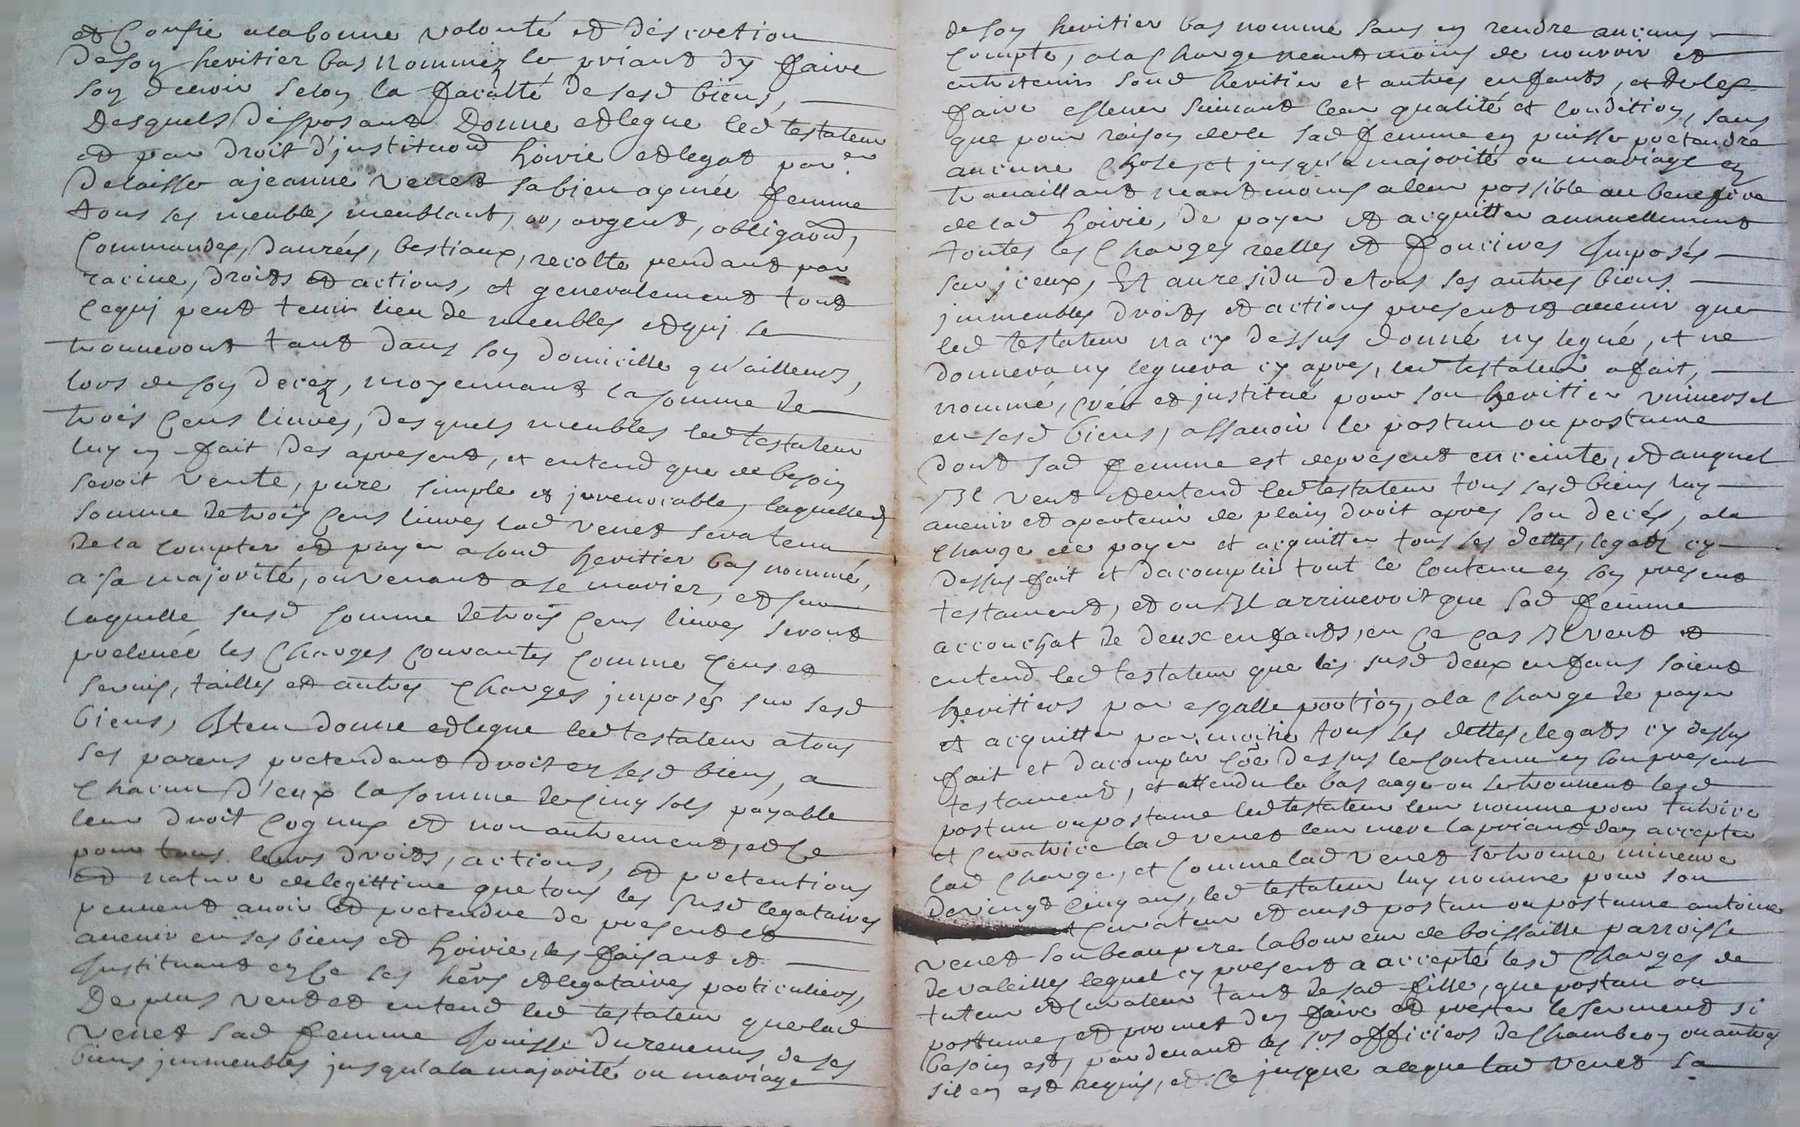 et Confie alabonne volonté et discretion
Desoy heritier bas nommez le priant dy faire
soy devoir seloy la faculté de sesd biens,
Desquels disposant Donne etlegue led testateur
et par droit d'justituaōn hoirie etlegat par en
delaisse ajeanne Venet sabien aymée femme
tous ses meubles meublant, or, argent, obligaōn,
Commandes, danrées, bestiaux, recolte pendant par
racine, droits et actions, et generalement tout
cequj peut tenir lieu de meubles etquj se
trouueront tant dans soy domicille qu'ailleurs,
lors desoy decez, moyennant lasomme de
trois Cens liures, desquels meubles led testateur
luy ej fait des apresent, et entend que debesoin
seroit Vente, pure simple et jrreuocable, laquelle d
somme detrois Cens liures lad Venet seratenu
dela compter et payer asond heritier bas nommé,
a sa majorité, ouvenant ase marier, et sur
laquelle susd somme detrois Cens liures seront
preleuée les Charges courantes Comme Cens et
seruis, tailles et autres Charges jmposés sur sesd
biens, Item donne etlegue led testateur atous
ses parens pretendant droit ey sesd biens, a
Chacun d'eux lasomme deCinq sols payable
leur droit Cognux et non autrement, et Ce
pour tous leurs droits, actions, et pretentions
et nature delegittime quetous les susd legataires
peuuent auoir et pretendre de present et
auenir en ses biens et hoirie, les faisant et
Jnstituant ey Ce ses hērs etlegataires particuliers,
De plus veut et entend led testateur quelad
Venet sad femme Jouisse durevenus de ses
biens jmmeubles jusqu'ala majorité ou mariage
desoy heritier bas nommé sans ey rendre aucuns
Compte, ala Charge neantmoins de nourrir et
entretenir sond heritier et autres enfants, et deles
faire esleuer suiuant leur qualité et Condition, sans
que pour raisoy dece sad femme ey puisse pretandre
aucune Chose, et jusqu'a majorité ou mariage ey
trauaillant neantmoins aleur possible au benefice
de lad hoirie, de payer et acquitter annuellement
toutes les Charges réelles et foncires Jmposés
sur jceux, Et auresidu detous ses autres biens
jmmeubles droits et actions present et auenir que
led testateur na cy dessus donné ny legué, et ne
donnera ny leguera cy apres, led testateur afait,
nommé, créé et justitué pour son heritier vniuersel
en sesd biens, assauoir le postum ou postume
dont sad femme est depresent enceinte, et auquel
Il veut et entend led testateur tous sesd biens luy
auenir et apartenir de plain droit apres son deces, ala
Charge de payer et acquitter tous ses dettes, legats cy
dessus fait et dacomplir tout le Contenu ey soy present
testament, et ou Il arriueroit que sad femme
accouchat de deux enfants, en Ce Cas Il veut et
entend led testateur que les susd deux enfans soient
heritiers par esgalle portioy, ala Charge de payer
et acquitter par moitié tous ses dettes, legats cy dessus
fait et dacomplir Coē dessus le Contenu ey son present
testament, et attendu le bas aage ou setrouuent lesd
postum oupostume led testateur leur nomme pour tutrice
et Curatrice lad Venet leur mere lapriant dey accepter
lad Charge, et Comme lad Venet setrouue mineure
devingt Cinq ans, led testateur luy nomme pour son
Curateur et ausd postum ou postume antoine
Venet son beaupere laboureur de boissaille parroisse
de valeilles lequel cy present a accepté lesd Charges de
tuteur et Curateur tant de sad fille, que postum ou
postume, et promet dey faire et prester leserment si
besoin est, pardeuant les srs officiers de Chambeoy ou autres
sil ey est requis, et Ce jusque aceque lad Venet sa